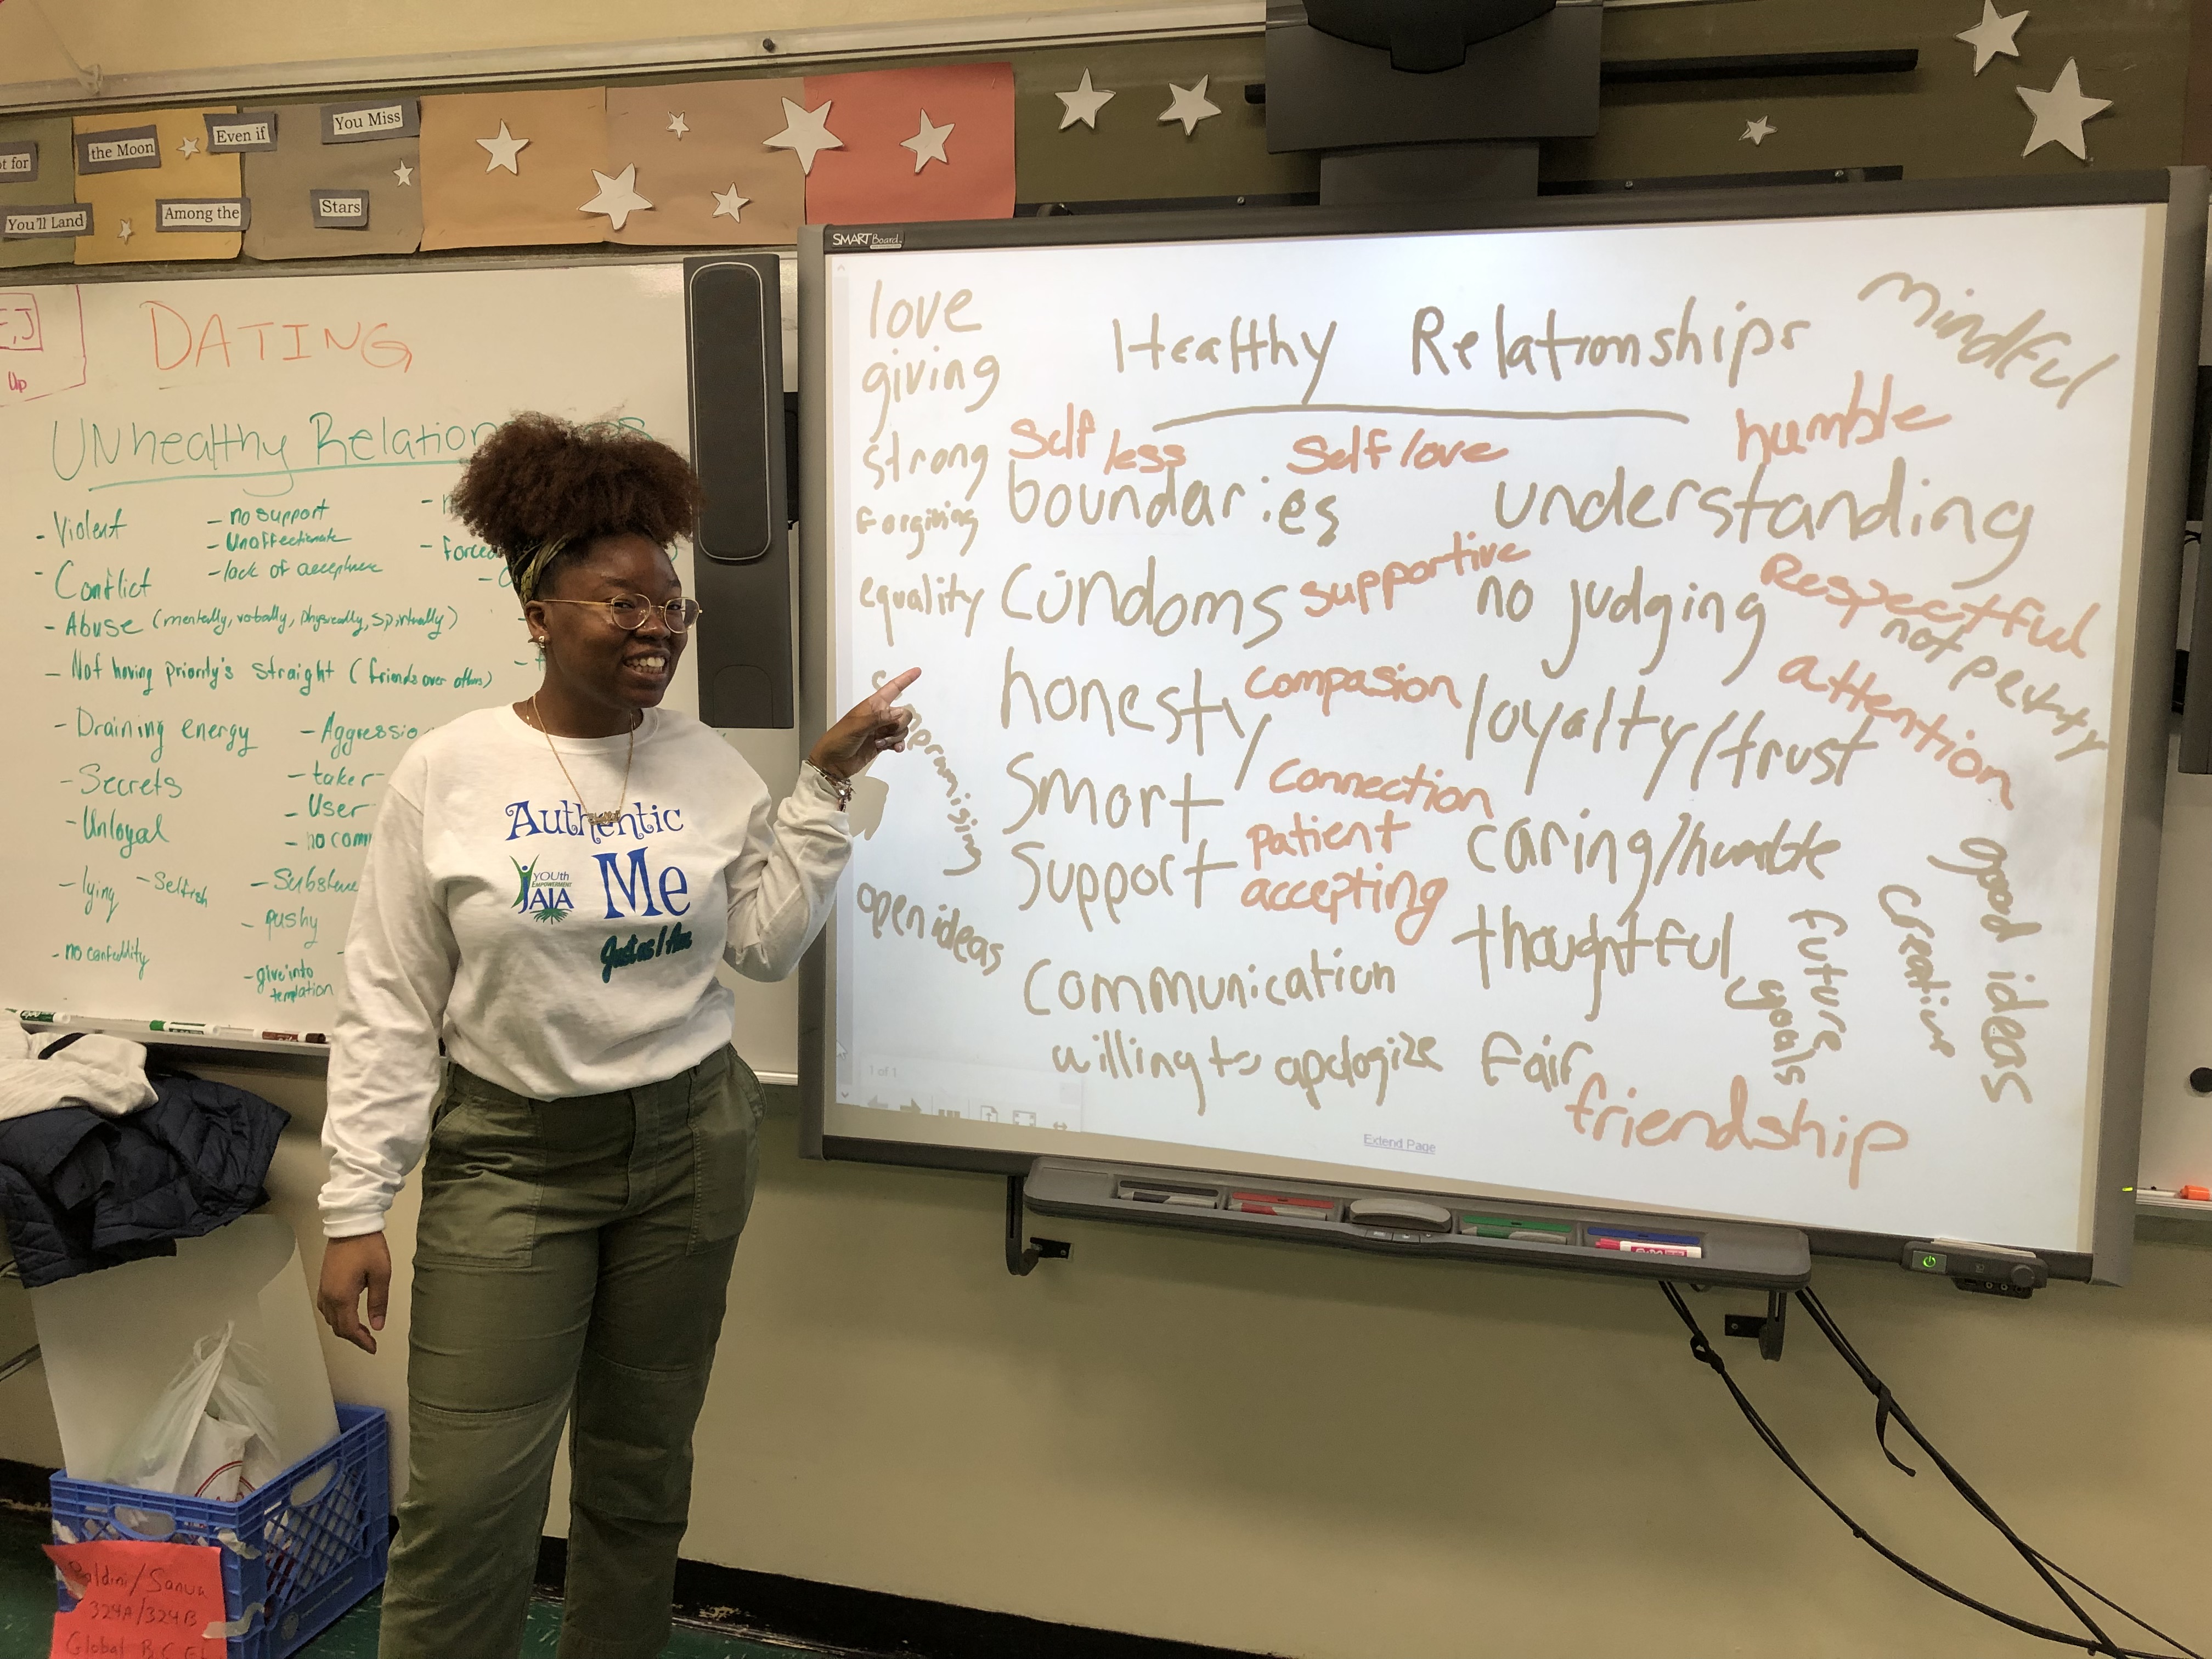 the Moon
Even if
You Miss
You'll Land
Among the
Stars
Up
DATING
UNhealthy
- Violent
- Conflict
- Abuse (mentally, verbally, physically, spiritually)
- Not having priority's straight (friends over others)
- Draining energy
- Secrets
- Unloyal
- lying
- Selfish
- no support
- Unaffectionate
- lack of acceptance
- taker
- User
- pushy
- give into
temptation
Authentic
Me
YOUth
EMPOWERMENT
JAIA
Just as I Am
SMART Board
Healthy Relationships
love
giving
strong
Forgiving
equality
open ideas
Self less
Self love
humble
mindful
boundaries
understanding
Cundoms
supportive
no judging
Respectful
not petty
honesty
compasion
loyalty/trust
attention
Smart
connection
patient
caring/humble
Support
accepting
thoughtful
Communication
willing to apologize
Fair
friendship
future
goals
creative
good ideas
1 of 1
Extend Page
324A/324B
Global